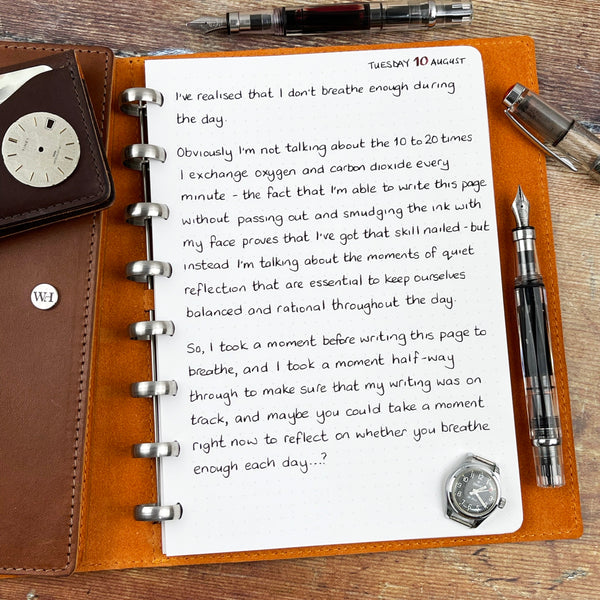 TUESDAY 10 AUGUST
I've realised that I don't breathe enough during
the day.
Obviously I'm not talking about the 10 to 20 times
I exchange oxygen and carbon dioxide every
minute - the fact that I'm able to write this page
without passing out and smudging the ink with
my face proves that I've got that skill nailed - but
instead I'm talking about the moments of quiet
reflection that are essential to keep ourselves
balanced and rational throughout the day.
So, I took a moment before writing this page to
breathe, and I took a moment half-way
through to make sure that my writing was on
track, and maybe you could take a moment
right now to reflect on whether you breathe
enough each day....?
WH